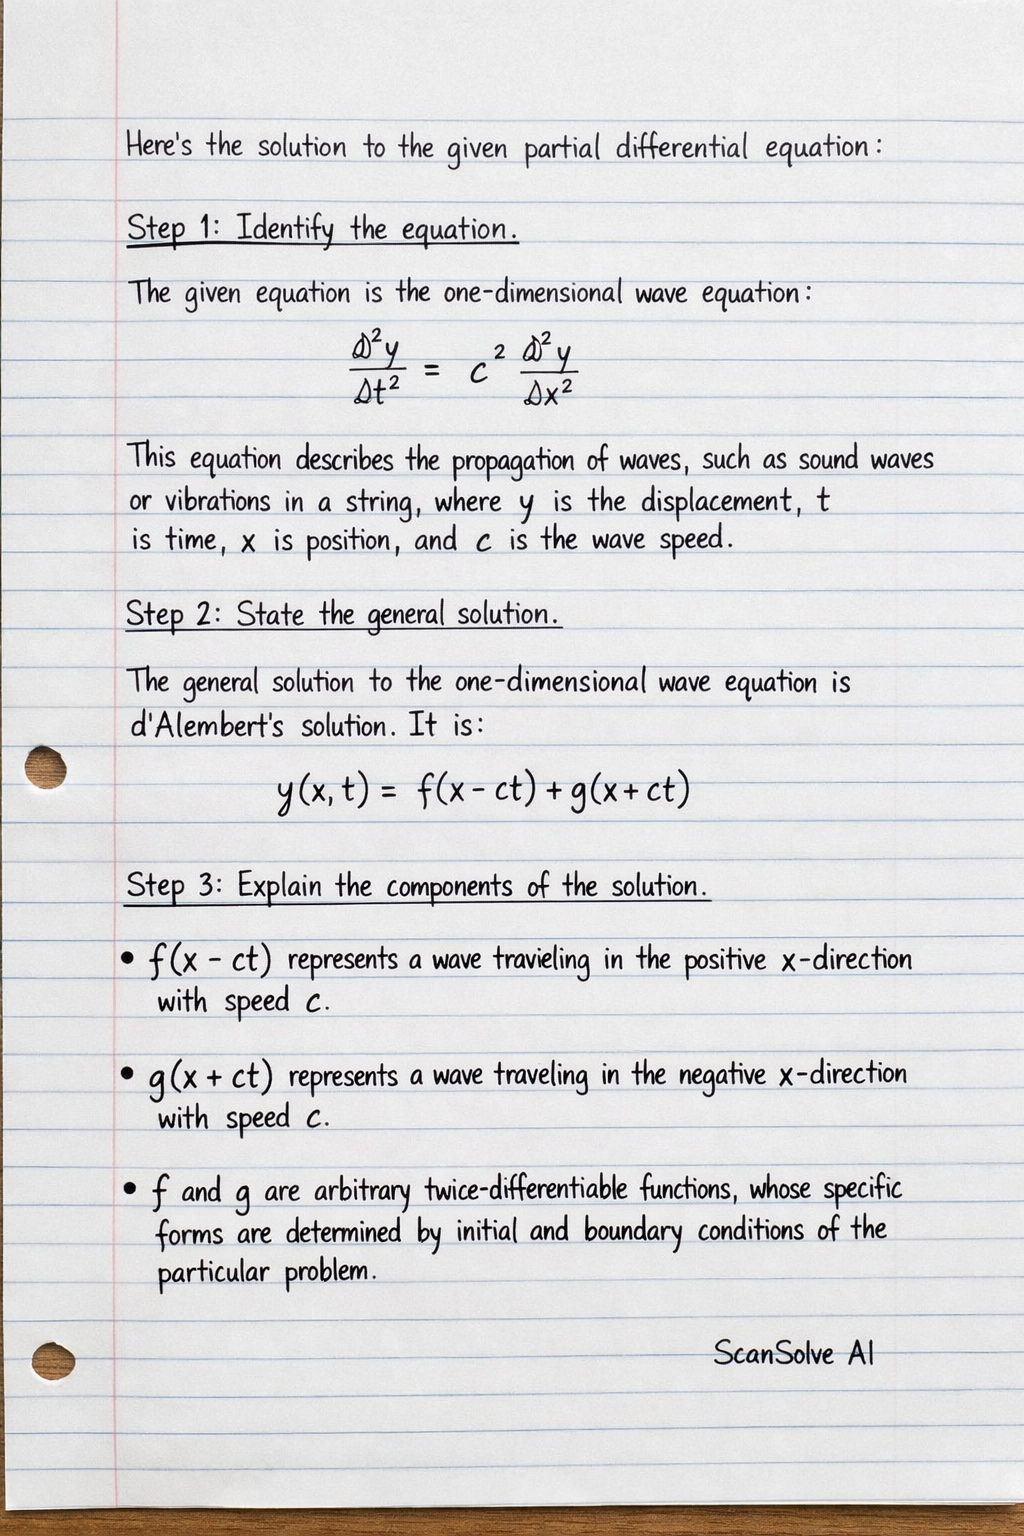 Here's the solution to the given partial differential equation:
Step 1: Identify the equation.
The given equation is the one-dimensional wave equation:
∂²y/∂t² = c² ∂²y/∂x²
This equation describes the propagation of waves, such as sound waves
or vibrations in a string, where y is the displacement, t
is time, x is position, and c is the wave speed.
Step 2: State the general solution.
The general solution to the one-dimensional wave equation is
d'Alembert's solution. It is:
y(x, t) = f(x - ct) + g(x + ct)
Step 3: Explain the components of the solution.
• f(x - ct) represents a wave travieling in the positive x-direction
with speed c.
• g(x + ct) represents a wave traveling in the negative x-direction
with speed c.
• f and g are arbitrary twice-differentiable functions, whose specific
forms are determined by initial and boundary conditions of the
particular problem.
ScanSolve AI